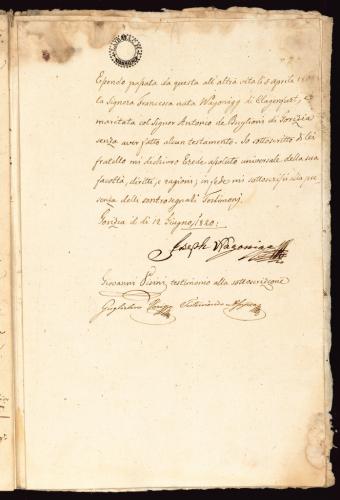 Essendo passata da questa all'altra vita li 5 aprile
la Signora Francesca nata Wagonigg di Clagenfurt,
maritata col Signor Antonio de Buglioni di Gorizia
senza aver fatto alcun testamento. Io sottoscritto di lei
fratello mi dichiaro Erede assoluto universale della sua
facoltà, diritti, e ragioni; in fede mi sottoscrissi alla pre
senza delli controsegnati Testimonj.
Gorizia il di 12 Giugno 1820:
Joseph Wagonigg
Giovanni testimonio alla sottoscrizione
Guglielmo testimonio